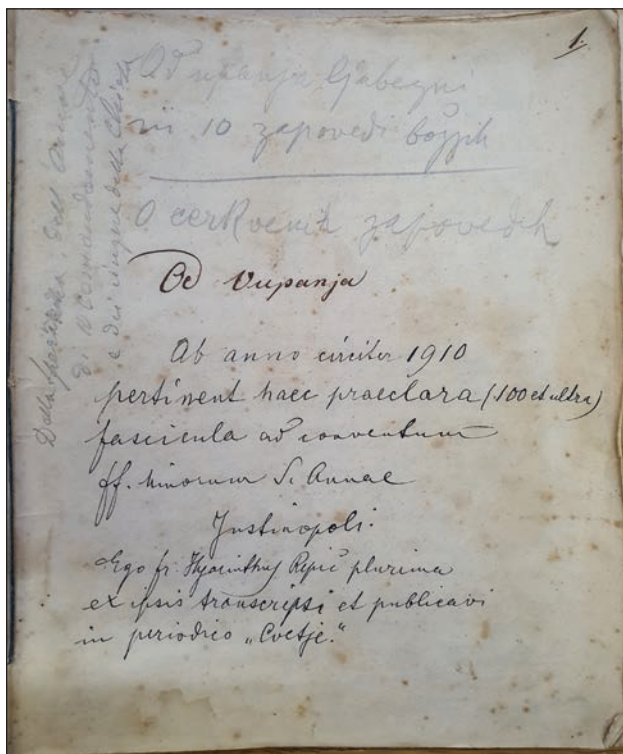 1.
Od upanja ljubezni
in 10 zapovedi božjih
O cerkvenih zapovedih
Od Vupanja
Ab anno circiter 1910
pertinent haec praeclara (100 et ultra)
fascicula ad conventum
ff. Minorum S. Annae
Justinopoli.
Ego fr. Hyacinthus Repič plurima
ex ipsis transcripsi et publicavi
in periodico „Cvetje."
Dalla speranza, dall'Amore
di 10 Comandamento
e dei cinque della Chiesa